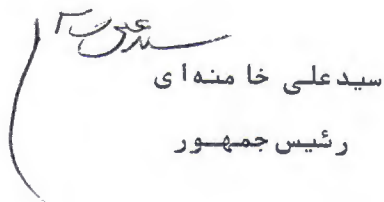 سیدعلی خامنه‌ای
رئیس جمهور